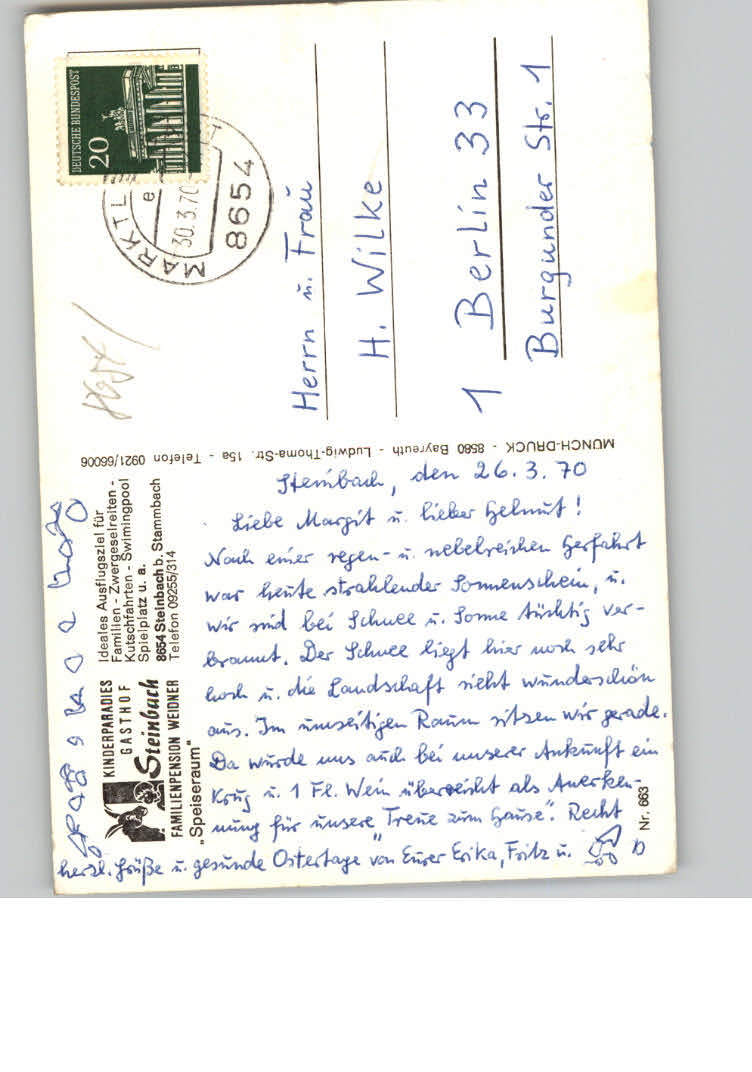 KINDERPARADIES
GASTHOF
Steinbach
FAMILIENPENSION WEIDNER
"Speiseraum"
Ideales Ausflugsziel für
Familien - Zwergeselreiten -
Kutschfahrten - Swimingpool
Spielplatz u. a.
8654 Steinbach b. Stammbach
Telefon 09255/314
Steinbach, den 26.3.70
Liebe Margit u. lieber Helmut!
Nach einer regen- u. nebelreichen Herfahrt
war heute strahlender Sonnenschein, u.
wir sind bei Schnee u. Sonne tüchtig ver-
brannt. Der Schnee liegt hier noch sehr
hoch u. die Landschaft sieht wunderschön
aus. Im umseitigen Raum sitzen wir gerade.
Da wurde uns auch bei unserer Ankunft ein
Krug u. 1 Fl. Wein überreicht als Anerken-
nung für unsere "Treue zum Hause". Recht
herzl. Grüße u. gesunde Ostertage von Eurer Erika, Fritz u.
Nr. 663
MÜNCH-DRUCK - 8580 Bayreuth - Ludwig-Thoma-Str. 15a - Telefon 0921/66006
DEUTSCHE BUNDESPOST
20
MARKTL
e
30.3.70
8654
Herrn u. Frau
H. Wilke
1 Berlin 33
Burgunder Str. 1